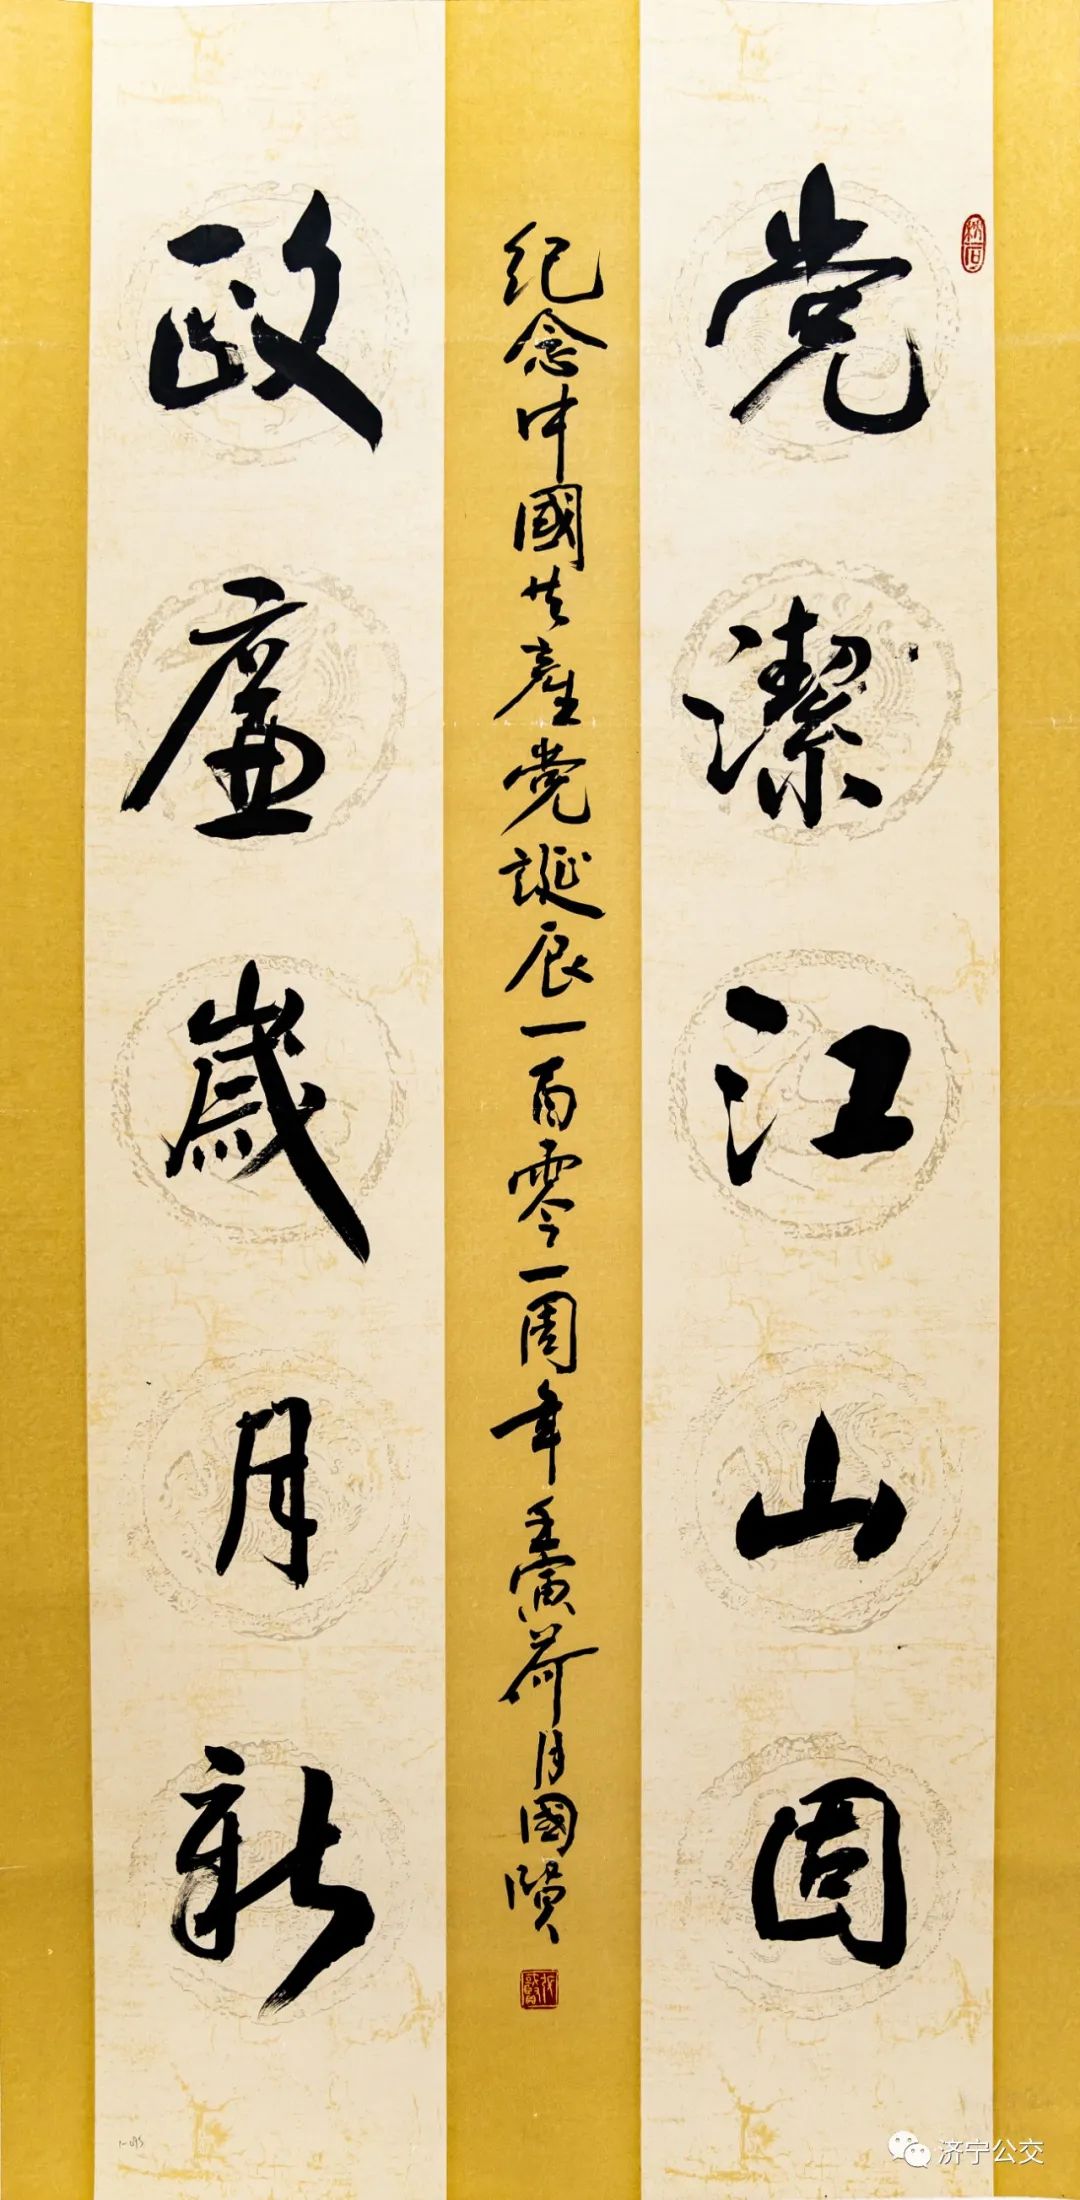 党潔江山固
紀念中國共產党誕辰一百零一周年壬寅荷月國賢
政廉歲月新
济宁公交